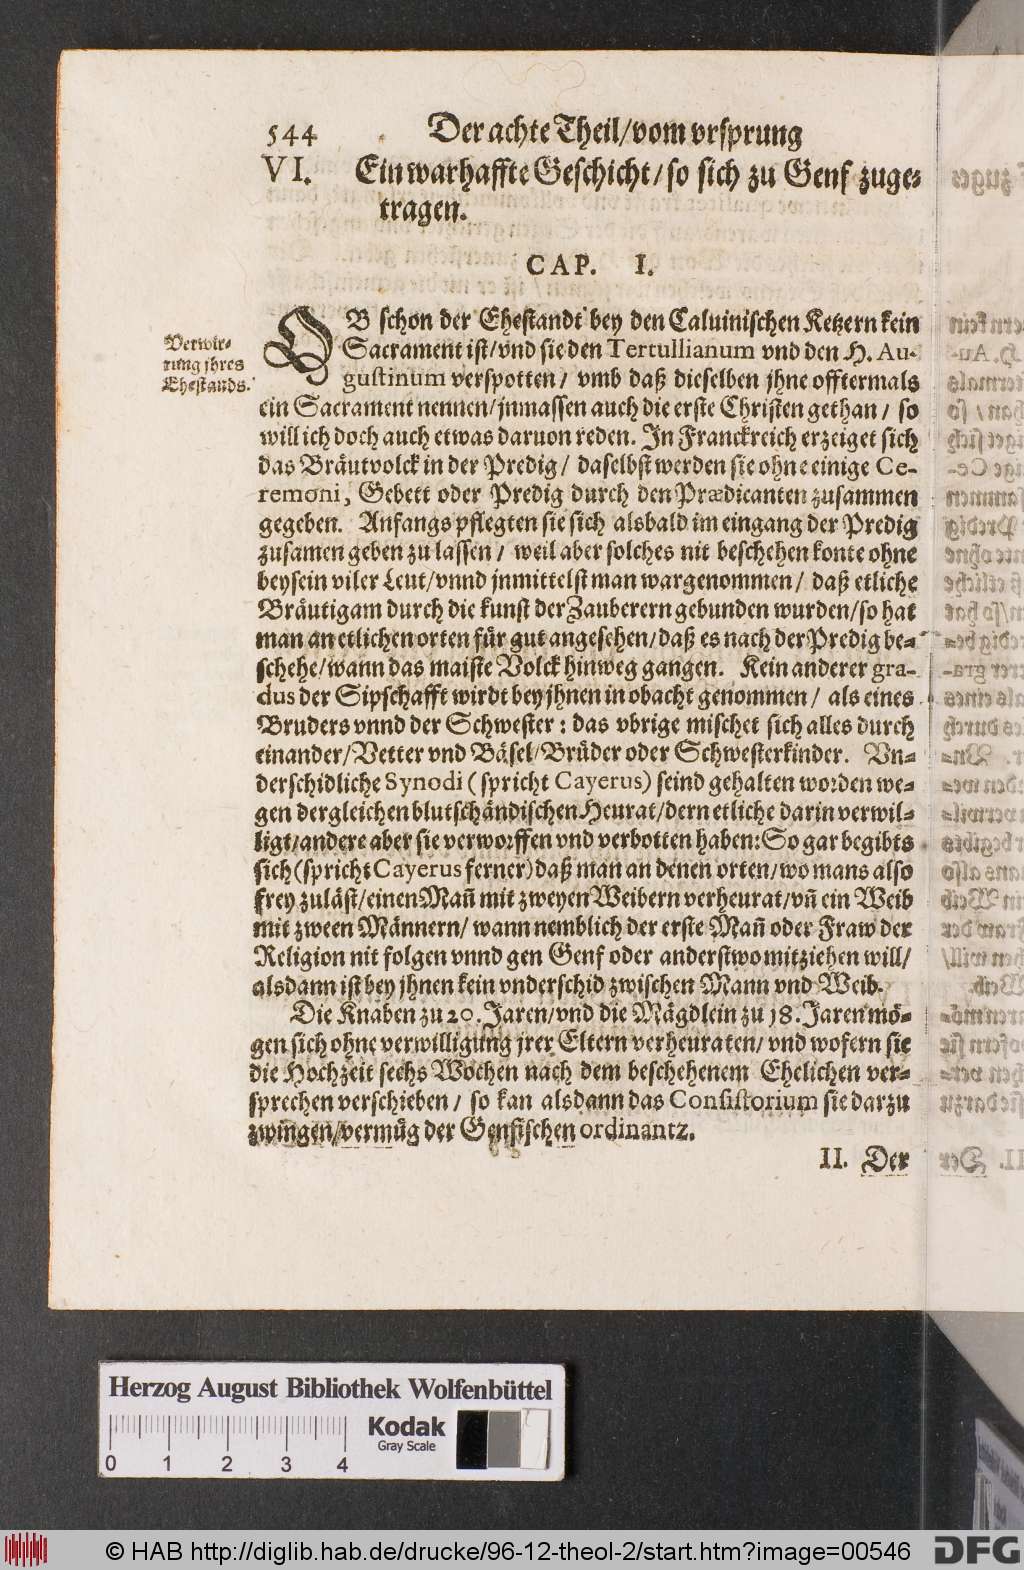 544 Der achte Theil/vom vrsprung
VI. Ein warhaffte Geschicht/so sich zu Genf zuge-
tragen.
CAP. I.
Verwir-
rung jhres
Ehestands.
OB schon der Ehestandt bey den Caluinischen Ketzern kein
Sacrament ist/vnd sie den Tertullianum vnd den H. Au-
gustinum verspotten/ vmb daß dieselben jhne offtermals
ein Sacrament nennen/jnmassen auch die erste Christen gethan/ so
will ich doch auch etwas daruon reden. In Franckreich erzeiget sich
das Bräutvolck in der Predig/ daselbst werden sie ohne einige Ce-
remoni, Gebett oder Predig durch den Prædicanten zusammen
gegeben. Anfangs pflegten sie sich alsbald im eingang der Predig
zusamen geben zu lassen/ weil aber solches nit beschehen konte ohne
beysein viler Leut/vnnd jnmittelst man wargenommen/ daß etliche
Bräutigam durch die kunst der Zauberern gebunden wurden/so hat
man an etlichen orten für gut angesehen/daß es nach der Predig be-
schehe/wann das maiste Volck hinweg gangen. Kein anderer gra-
dus der Sipschafft wirdt bey jhnen in obacht genommen/ als eines
Bruders vnnd der Schwester: das vbrige mischet sich alles durch
einander/Vetter vnd Bäsel/Brüder oder Schwesterkinder. Vn-
derschidliche Synodi (spricht Cayerus) seind gehalten worden we-
gen dergleichen blutschändischen Heurat/dern etliche darin verwil-
ligt/andere aber sie verworffen vnd verbotten haben: So gar begibts
sich (spricht Cayerus ferner) daß man an denen orten/wo mans also
frey zuläst/einen Mañ mit zweyen Weibern verheurat/vñ ein Weib
mit zween Männern/ wann nemblich der erste Mañ oder Fraw der
Religion nit folgen vnnd gen Genf oder anderstwo mitziehen will/
alsdann ist bey jhnen kein vnderschid zwischen Mann vnd Weib.
Die Knaben zu 20. Jaren/vnd die Mägdlein zu 18. Jaren mö-
gen sich ohne verwilligung jrer Eltern verheuraten/ vnd wofern sie
die Hochzeit sechs Wochen nach dem beschehenem Ehelichen ver-
sprechen verschieben/ so kan alsdann das Consistorium sie darzu
zwiñgen/vermüg der Genfischen ordinantz.
II. Der
Herzog August Bibliothek Wolfenbüttel
Kodak
Gray Scale
0 1 2 3 4
© HAB http://diglib.hab.de/drucke/96-12-theol-2/start.htm?image=00546
DFG